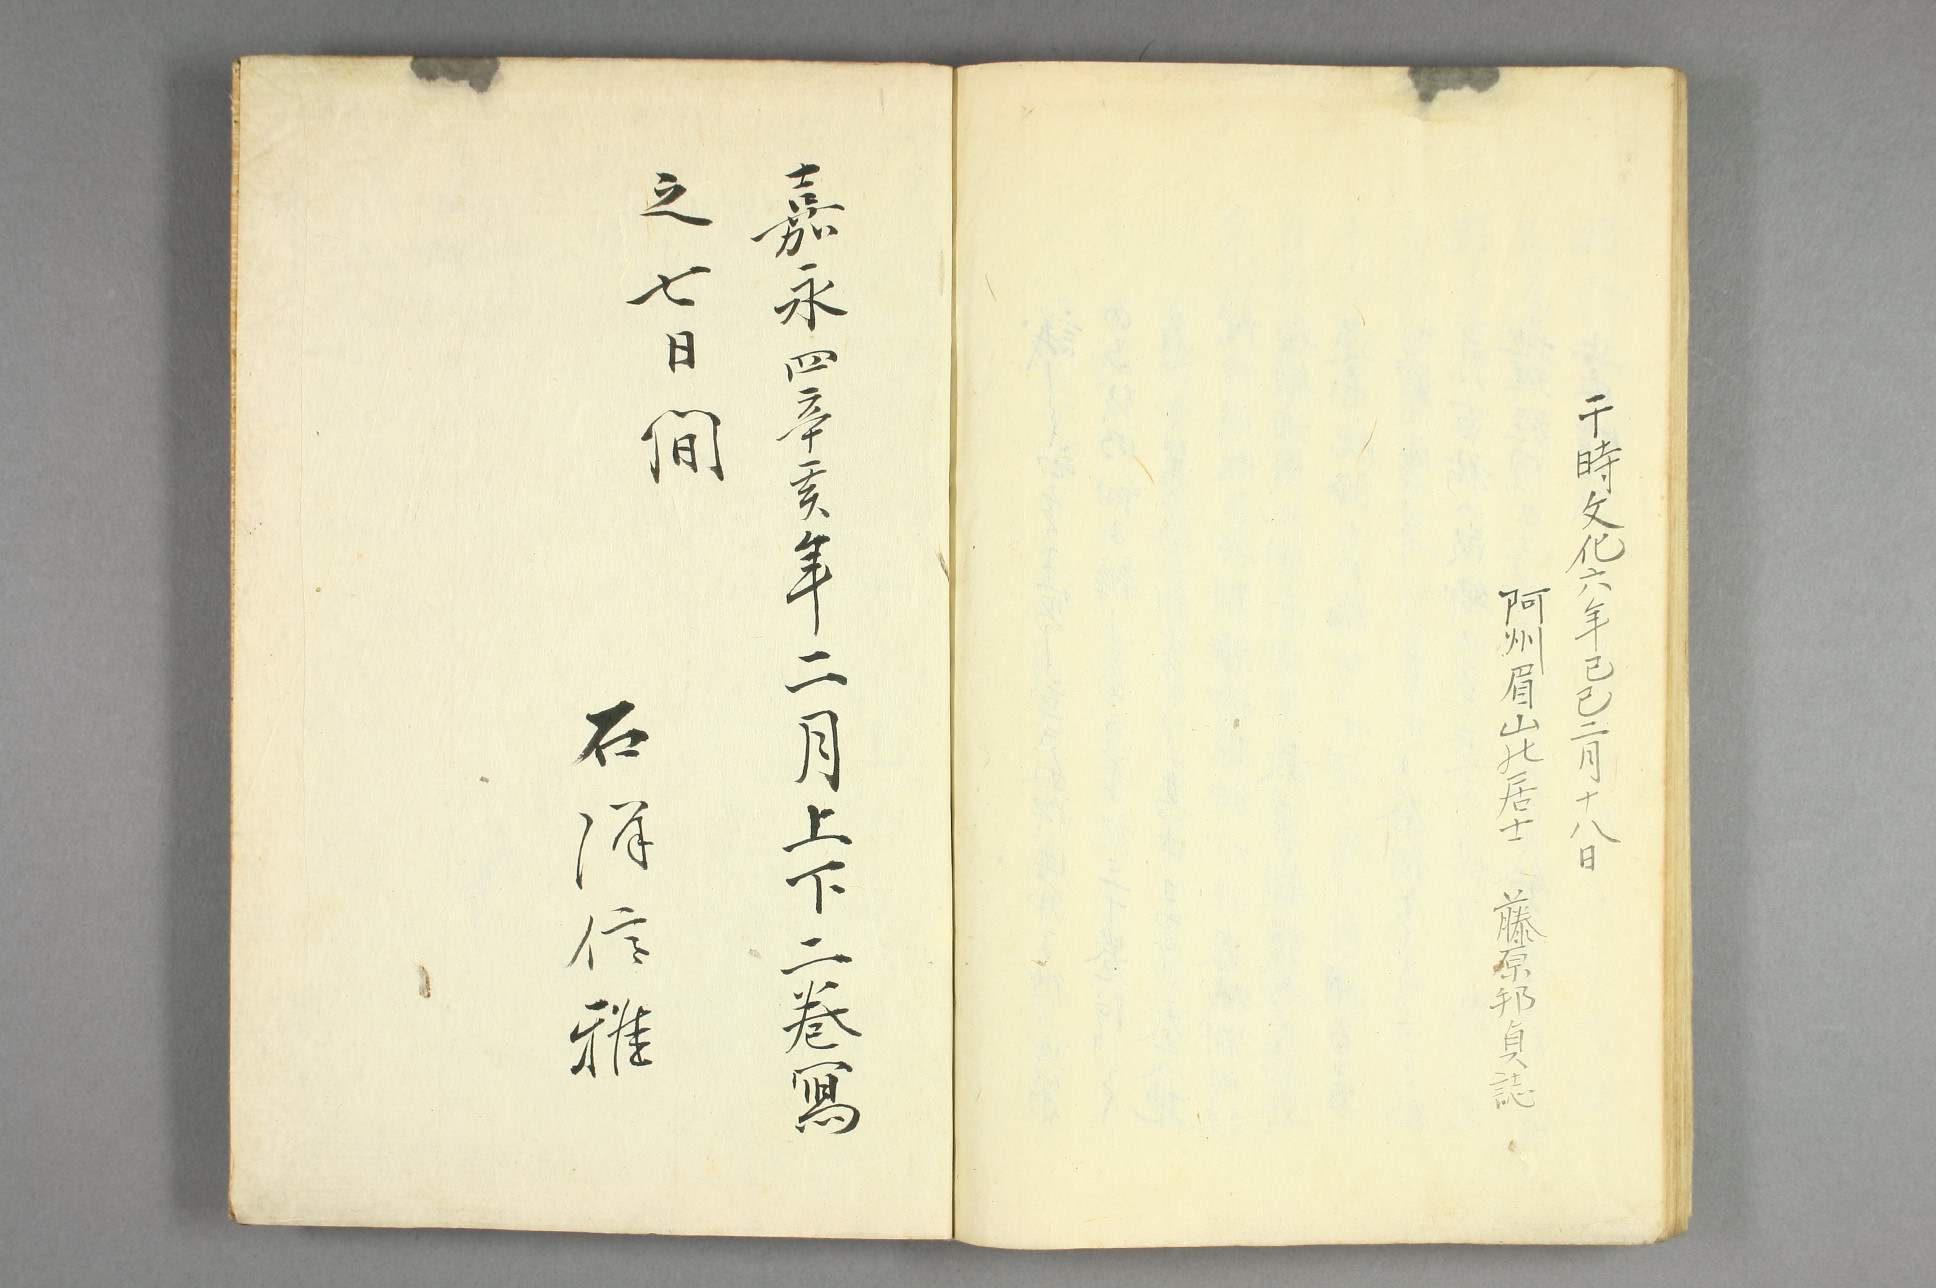 于時文化六年己巳二月十八日
阿州眉山北居士 藤原邦貞誌
嘉永四辛亥年二月上下二巻寫
之七日間
石河信雅